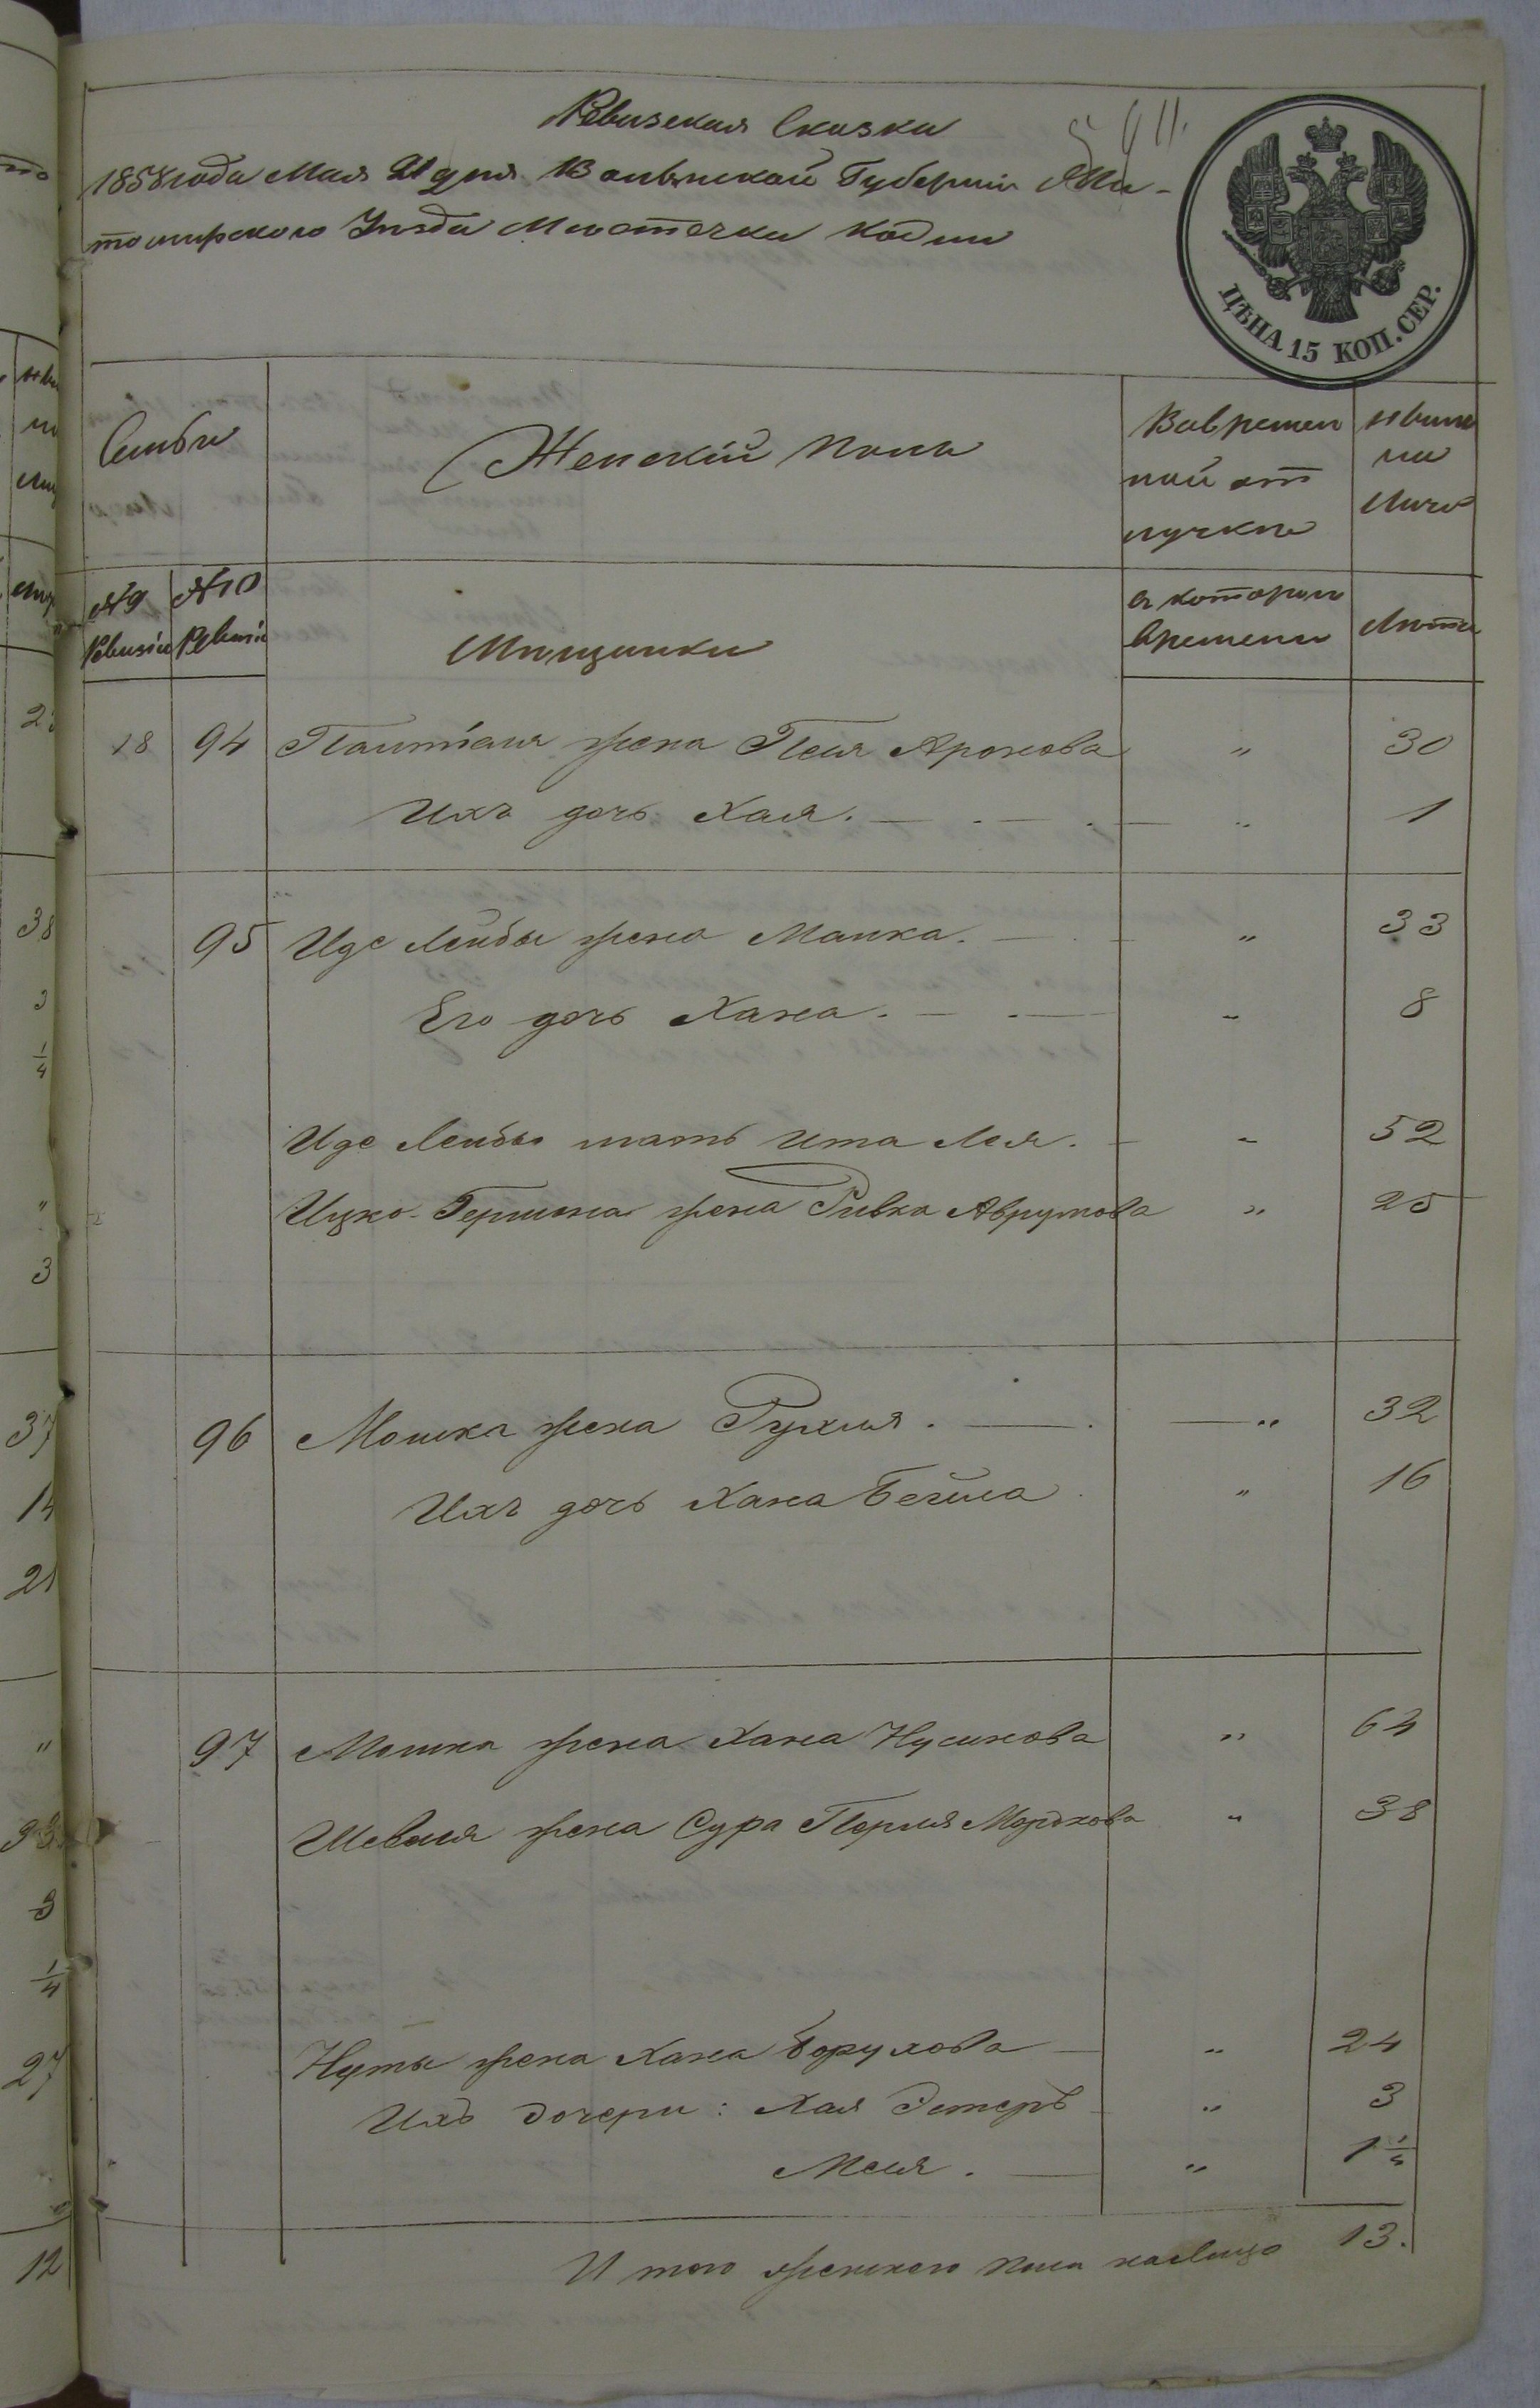 Ревизская Сказка
1858 года Мая 21 дня Волынской Губернии Жи-
томирского Уезда Местечка Кодни
ЦѢНА 15 КОП. СЕР.
Семьи
Женский полъ
Во времен
ной от
лучке
ныне
на
лицо
№ 9
Ревизiи
№ 10
Ревизiи
Мещанки
с которого
времени
Лета
18 94 жена Песя Аронова " 30
Ихъ дочь Хая. " 1
95 Иде Лейбы жена Манка. " 33
Его дочь Хана. " 8
Иде Лейбы мать Ита Лея. " 52
Ицко-Гершона жена Ривка Аврумова " 25
96 Мошка жена Рухля. " 32
Ихъ дочь Хана Бейла " 16
97 Мошка жена Хана Нусинова " 64
Шевеля жена Сура Перля Мордкова " 38
Нуты жена Хана Борухова " 24
Ихъ дочери: Хая Эстеръ " 3
" 1 1/4
Итого женского пола налицо 13.